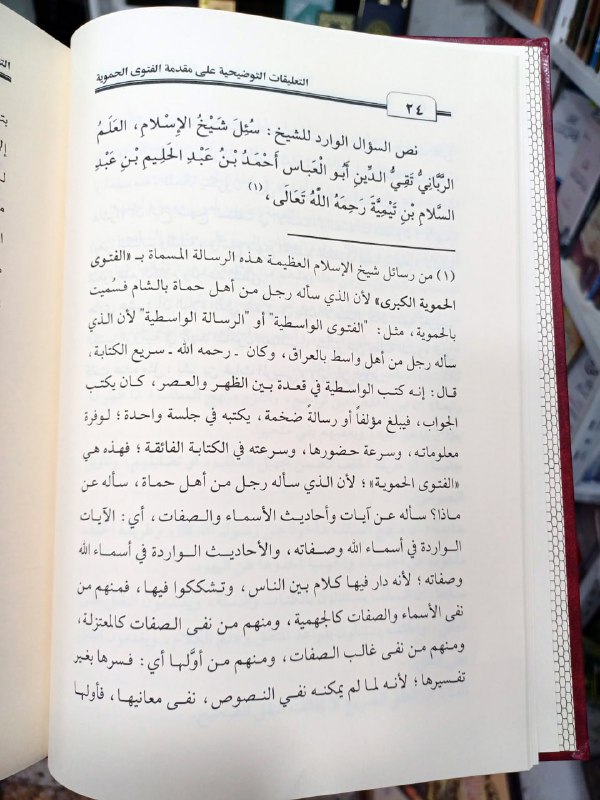 التعليقات التوضيحية على مقدمة الفتوى الحموية
٢٤
نص السؤال الوارد للشيخ: سُئِلَ شَيْخُ الإِسْلَامِ، العَلَمُ
الرَّبَّانِيُّ تَقِيُّ الدِّينِ أَبُو الْعَبَاسِ أَحْمَدُ بْنُ عَبْدِ الحَلِيمِ بْنِ عَبْدِ
السَّلَامِ بْنِ تَيْمِيَّةَ رَحِمَهُ اللَّهُ تَعَالَى، (١)
(١) من رسائل شيخ الإسلام العظيمة هذه الرسالة المسماة بـ «الفتوى
الحموية الكبرى» لأن الذي سأله رجل من أهل حماة بالشام فسُميت
بالحموية، مثل: "الفتوى الواسطية" أو "الرسالة الواسطية" لأن الذي
سأله رجل من أهل واسط بالعراق، وكان ـ رحمه الله ـ سريع الكتابة،
قال: إنه كتب الواسطية في قعدة بين الظهر والعصر، كان يكتب
الجواب، فيبلغ مؤلفاً أو رسالةً ضخمة، يكتبه في جلسة واحدة؛ لوفرة
معلوماته، وسرعة حضورها، وسرعته في الكتابة الفائقة؛ فهذه هي
«الفتوى الحموية»؛ لأن الذي سأله رجل من أهل حماة، سأله عن
ماذا؟ سأله عن آيات وأحاديث الأسماء والصفات، أي: الآيات
الواردة في أسماء الله وصفاته، والأحاديث الواردة في أسماء الله
وصفاته؛ لأنه دار فيها كلام بين الناس، وتشككوا فيها، فمنهم من
نفى الأسماء والصفات كالجهمية، ومنهم من نفى الصفات كالمعتزلة،
ومنهم من نفى غالب الصفات، ومنهم من أوَّلها أي: فسرها بغير
تفسيرها؛ لأنه لما لم يمكنه نفي النصوص، نفى معانيها، فأولها